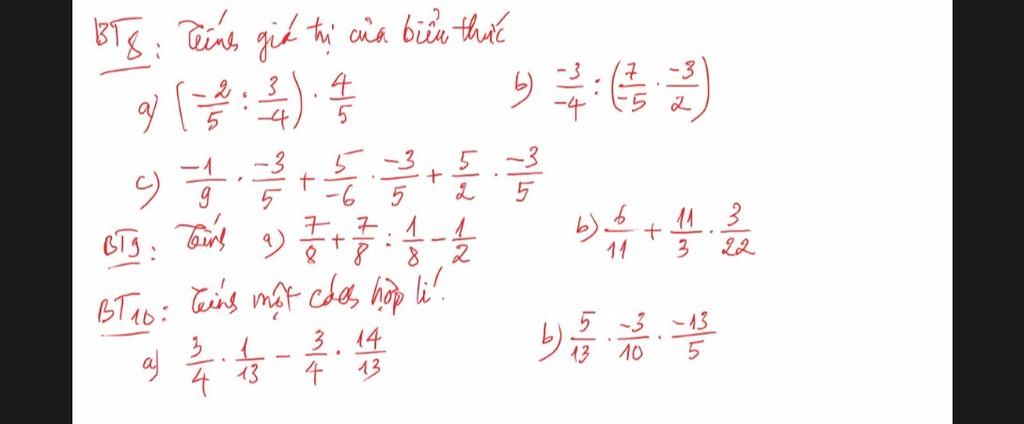 BT8: Tính giá trị của biểu thức
a) (-2/5 : 3/-4) · 4/5 b) -3/-4 : (7/-5 · -3/2)
c) -1/9 · -3/5 + 5/-6 · -3/5 + 5/2 · -3/5
BT9: Tính a) 7/8 + 7/8 : 1/8 - 1/2 b) 6/11 + 11/3 · 3/22
BT10: Tính một cách hợp lí.
a) 3/4 · 1/13 - 3/4 · 14/13 b) 5/13 · -3/10 · -13/5